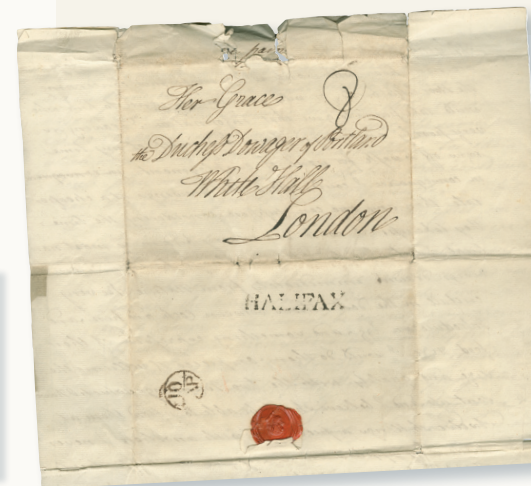 Her Grace
the Duchess Dowager of Portland
White Hall
London
HALIFAX